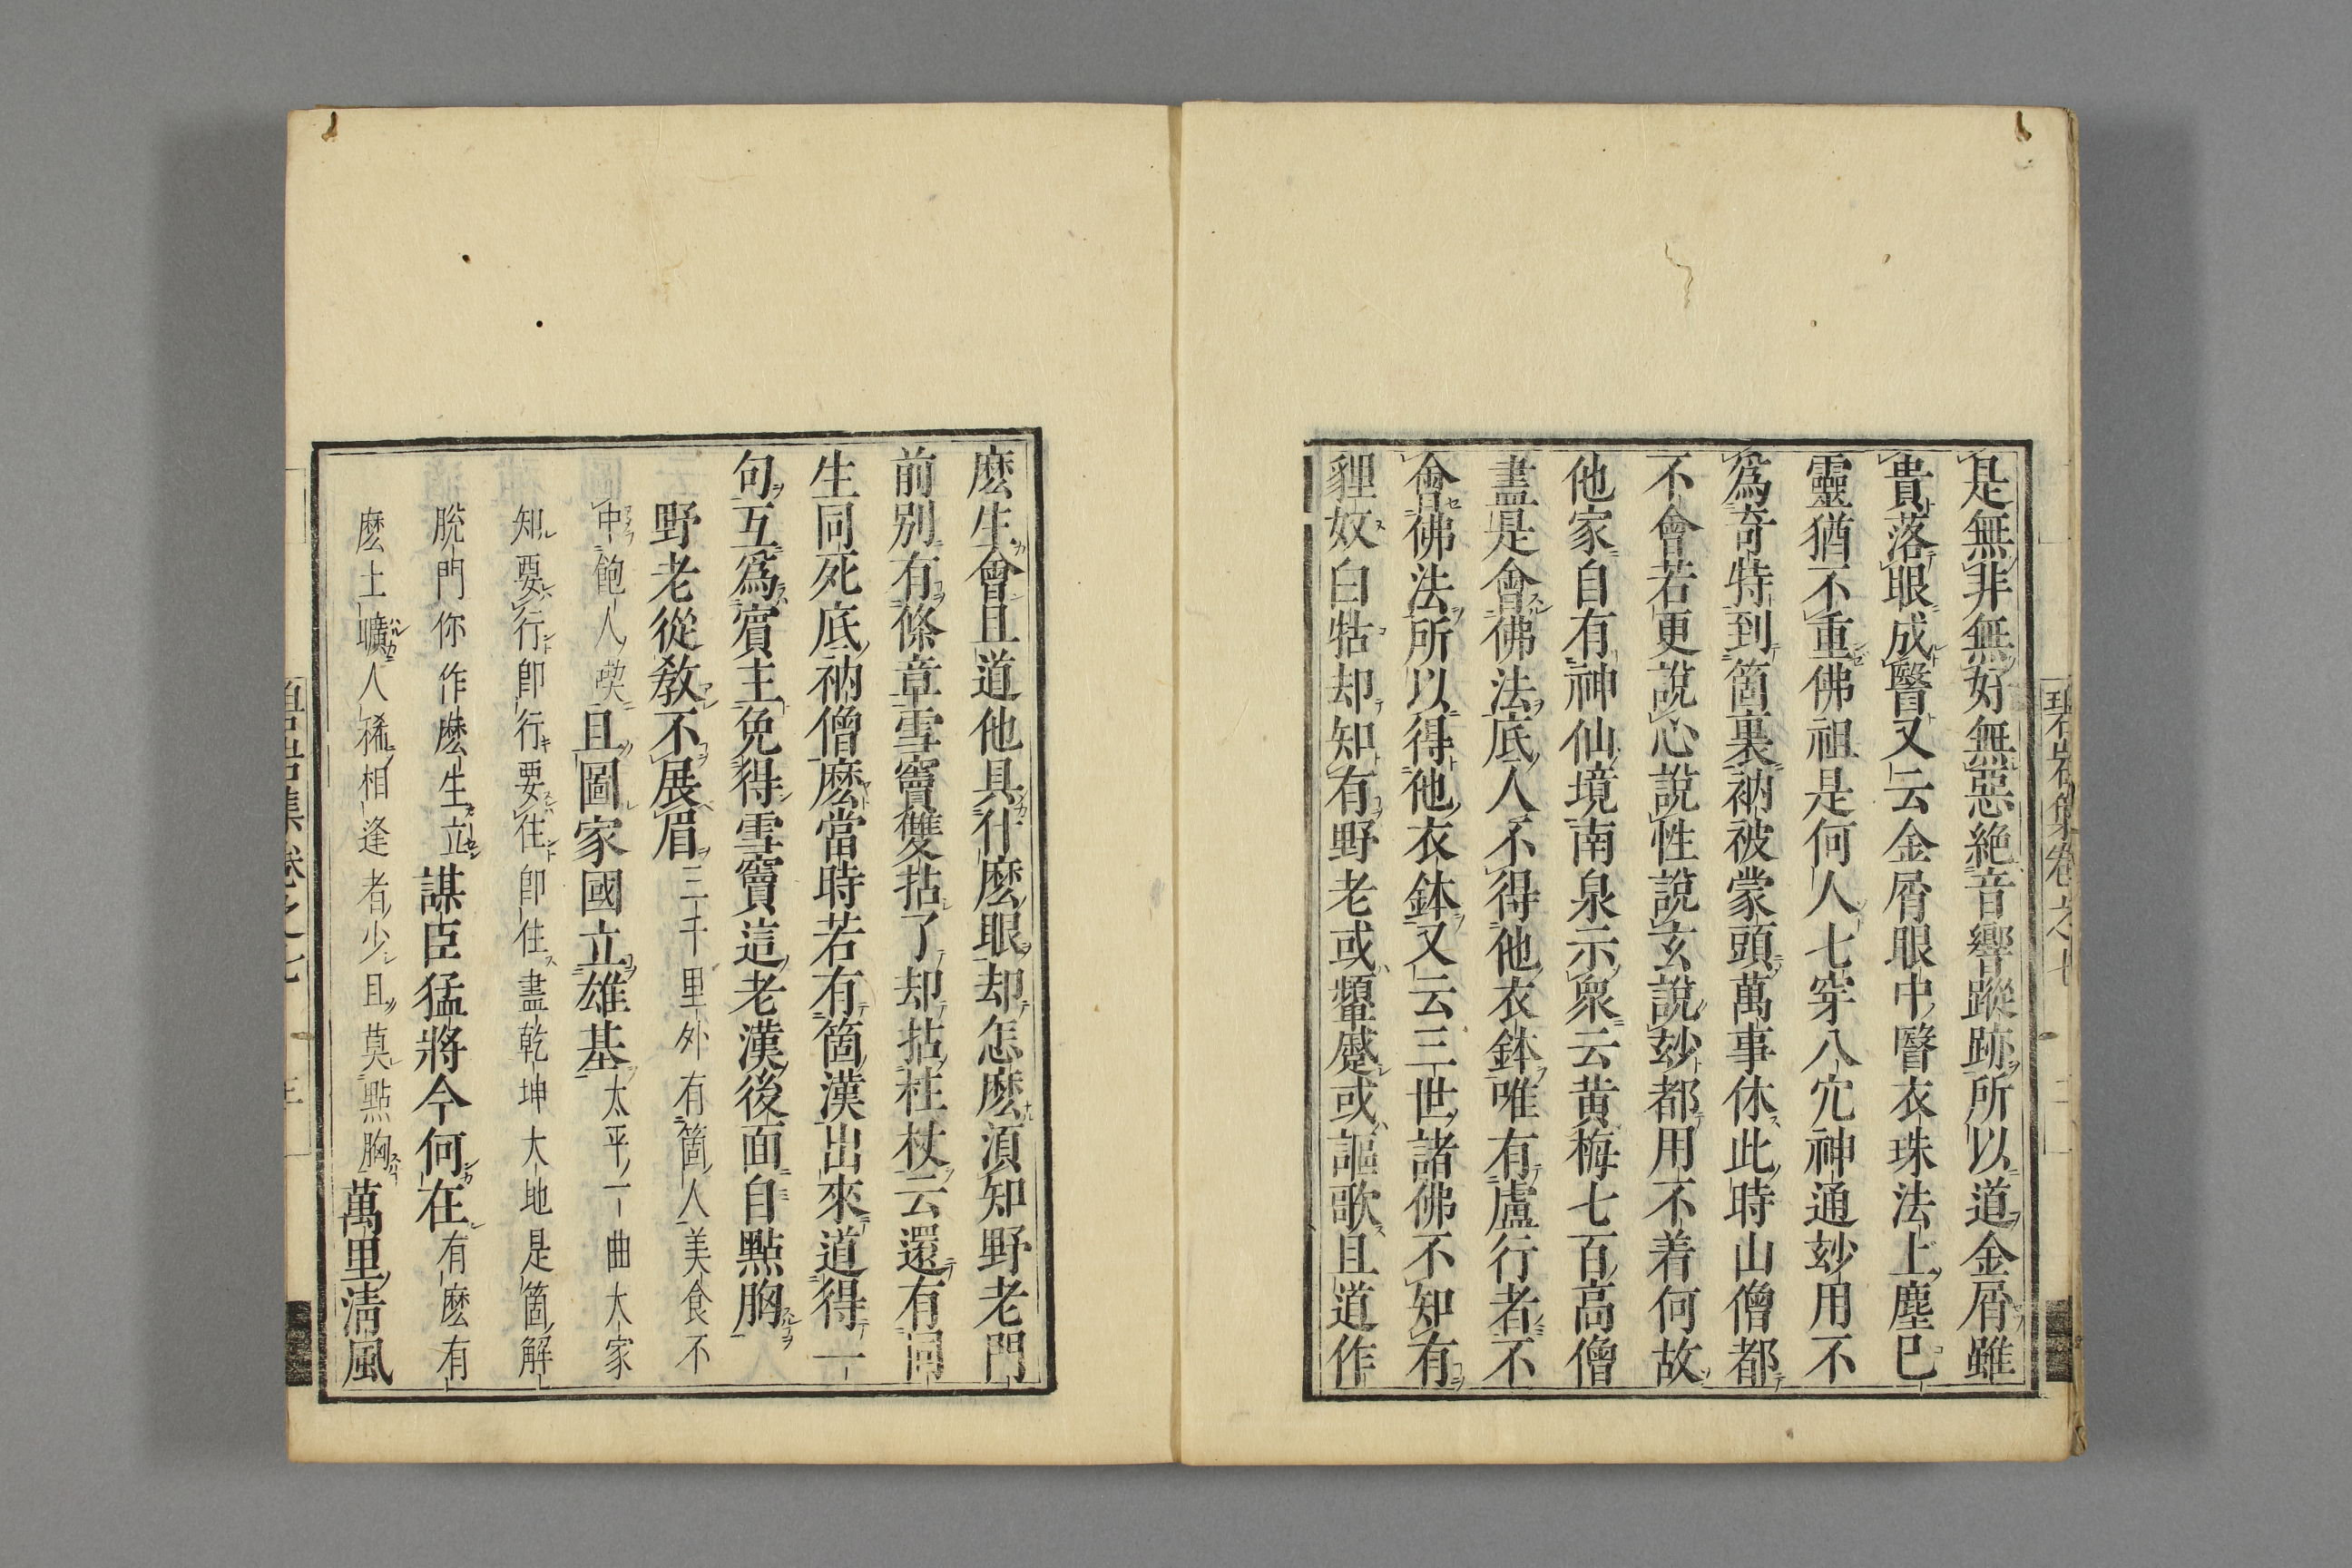 是無非無好無惡絶音響蹤跡所以道金屑雖
貴落眼成翳又云金屑眼中翳衣珠法上塵已
靈猶不重佛祖是何人七穿八穴神通玅用不
爲奇特到箇裏衲被蒙頭萬事休此時山僧都
不會若更說心說性說玄說玅都用不着何故
他家自有神仙境南泉示衆云黃梅七百高僧
盡是會佛法底人不得他衣鉢唯有盧行者不
會佛法所以得他衣鉢又云三世諸佛不知有
貍奴白牯却知有野老或顰蹙或謳歌且道作
麽生會且道他具什麽眼却怎麽湏知野老門
前別有條章雪竇雙拈了却拈柱杖云還有同
生同死底衲僧麽當時若有箇漢出來道得一
句互爲賓主免得雪竇這老漢後面自點胸
野老從教不展眉三千里外有箇人美食不
中飽人喫且圖家國立雄基太平一曲大家
知要行卽行要住卽住盡乾坤大地是箇解
脫門你作麽生立謀臣猛將今何在有麽有
麽土曠人稀相逢者少且莫點胸萬里淸風
碧岩集卷之七